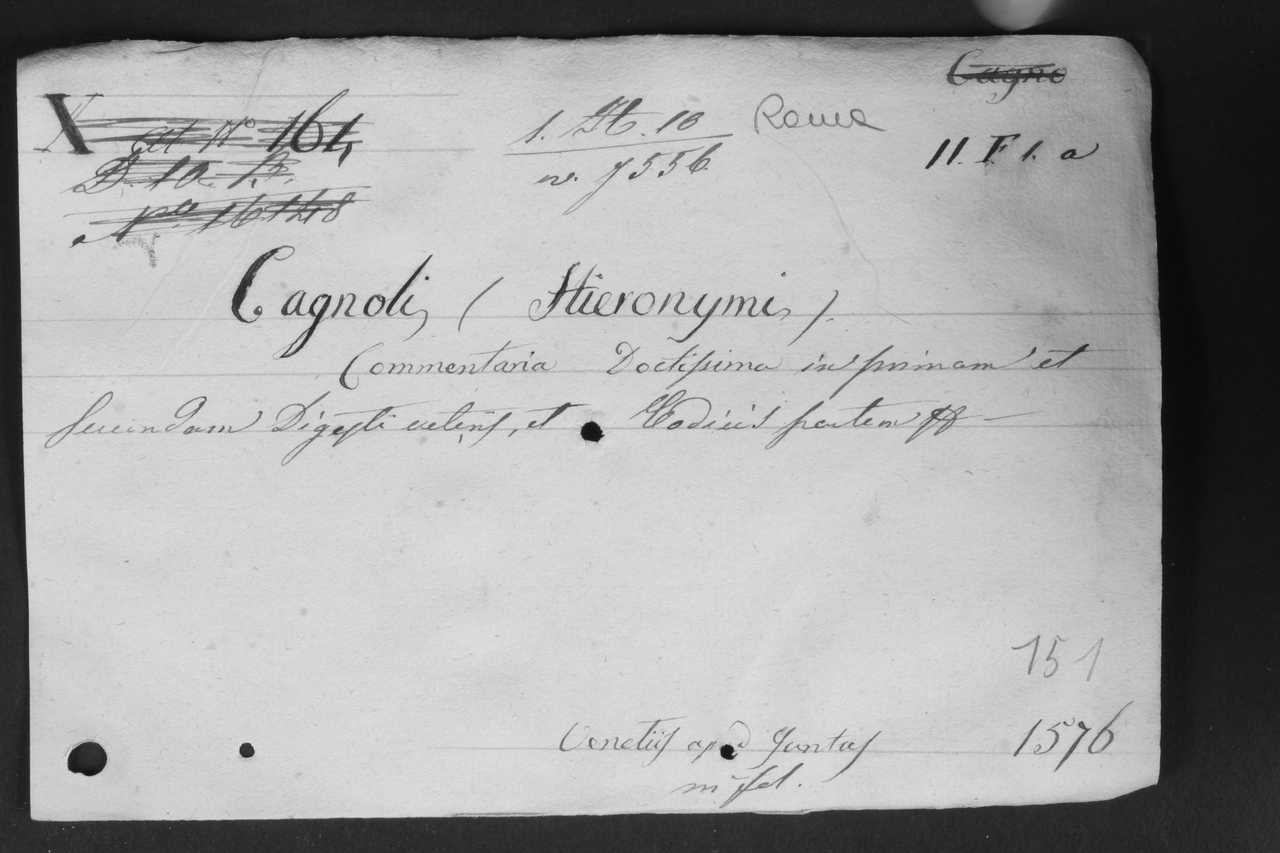 Cagno
X ad Nº 164
1. H. 10 Roma
D. 10. B.
n. 7556.
11. F. 1. a
16148
Cagnoli, (Hieronymi,).
Commentaria Doctissima in primam et
secundam Digesti veteris, et Codicis partem
151
Venetiis apud Juntas 1576